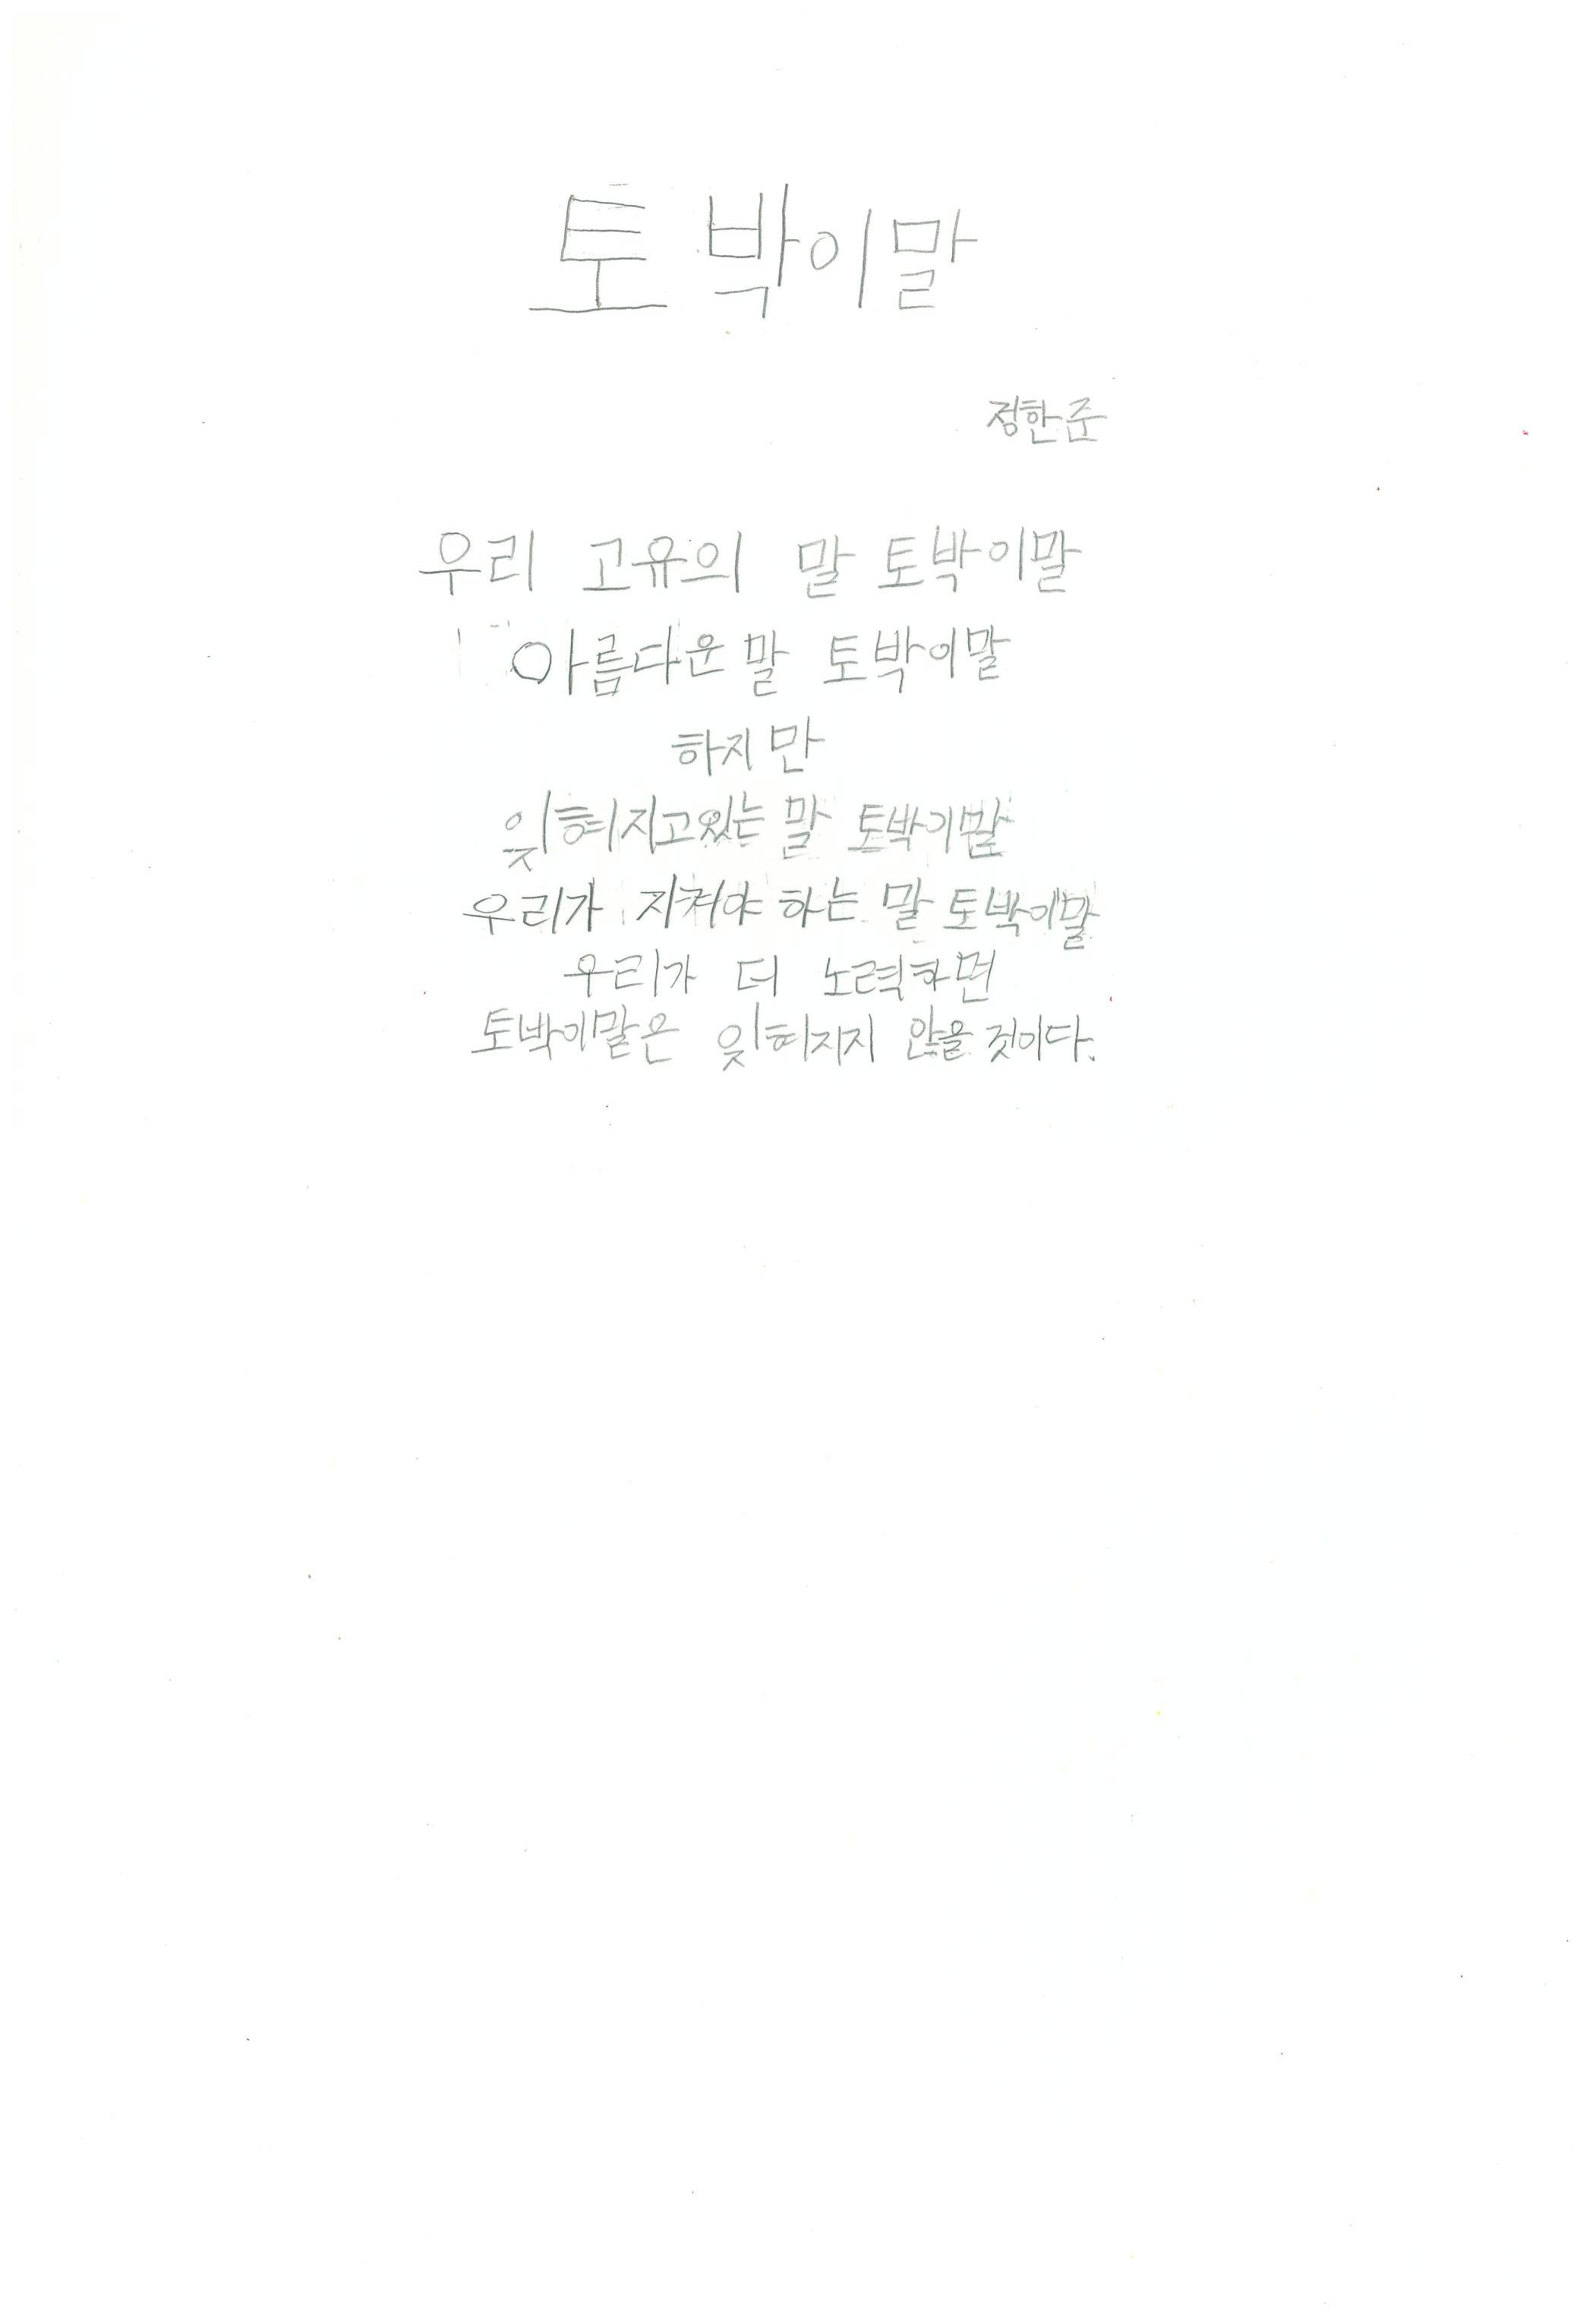 토박이말
정한준
우리 고유의 말 토박이말
아름다운 말 토박이말
하지만
잊혀지고있는 말 토박이말
우리가 지켜야 하는 말 토박이말
우리가 더 노력하면
토박이말은 잊혀지지 않을 것이다.